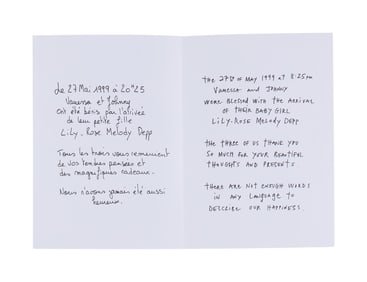 Le 27 Mai 1999 à 20h25
Vanessa et Johnny
ont été bénis par l'arrivée
de leur petite fille
LiLy. Rose Melody Depp
Tous les trois vous remercient
de vos tendres pensées et
des magnifiques cadeaux.
Nous n'avons jamais été aussi
heureux.
THE 27th OF MAY 1999 AT 8:25pm
VANESSA and JOHNNY
WERE BLESSED WITH THE ARRIVAL
OF THEIR BABY GIRL
LILY-ROSE MELODY DEPP
THE THREE OF US THANK YOU
SO MUCH FOR YOUR BEAUTIFUL
THOUGHTS AND PRESENTS.
THERE ARE NOT ENOUGH WORDS
IN ANY LANGUAGE TO
DESCRIBE OUR HAPPINESS.